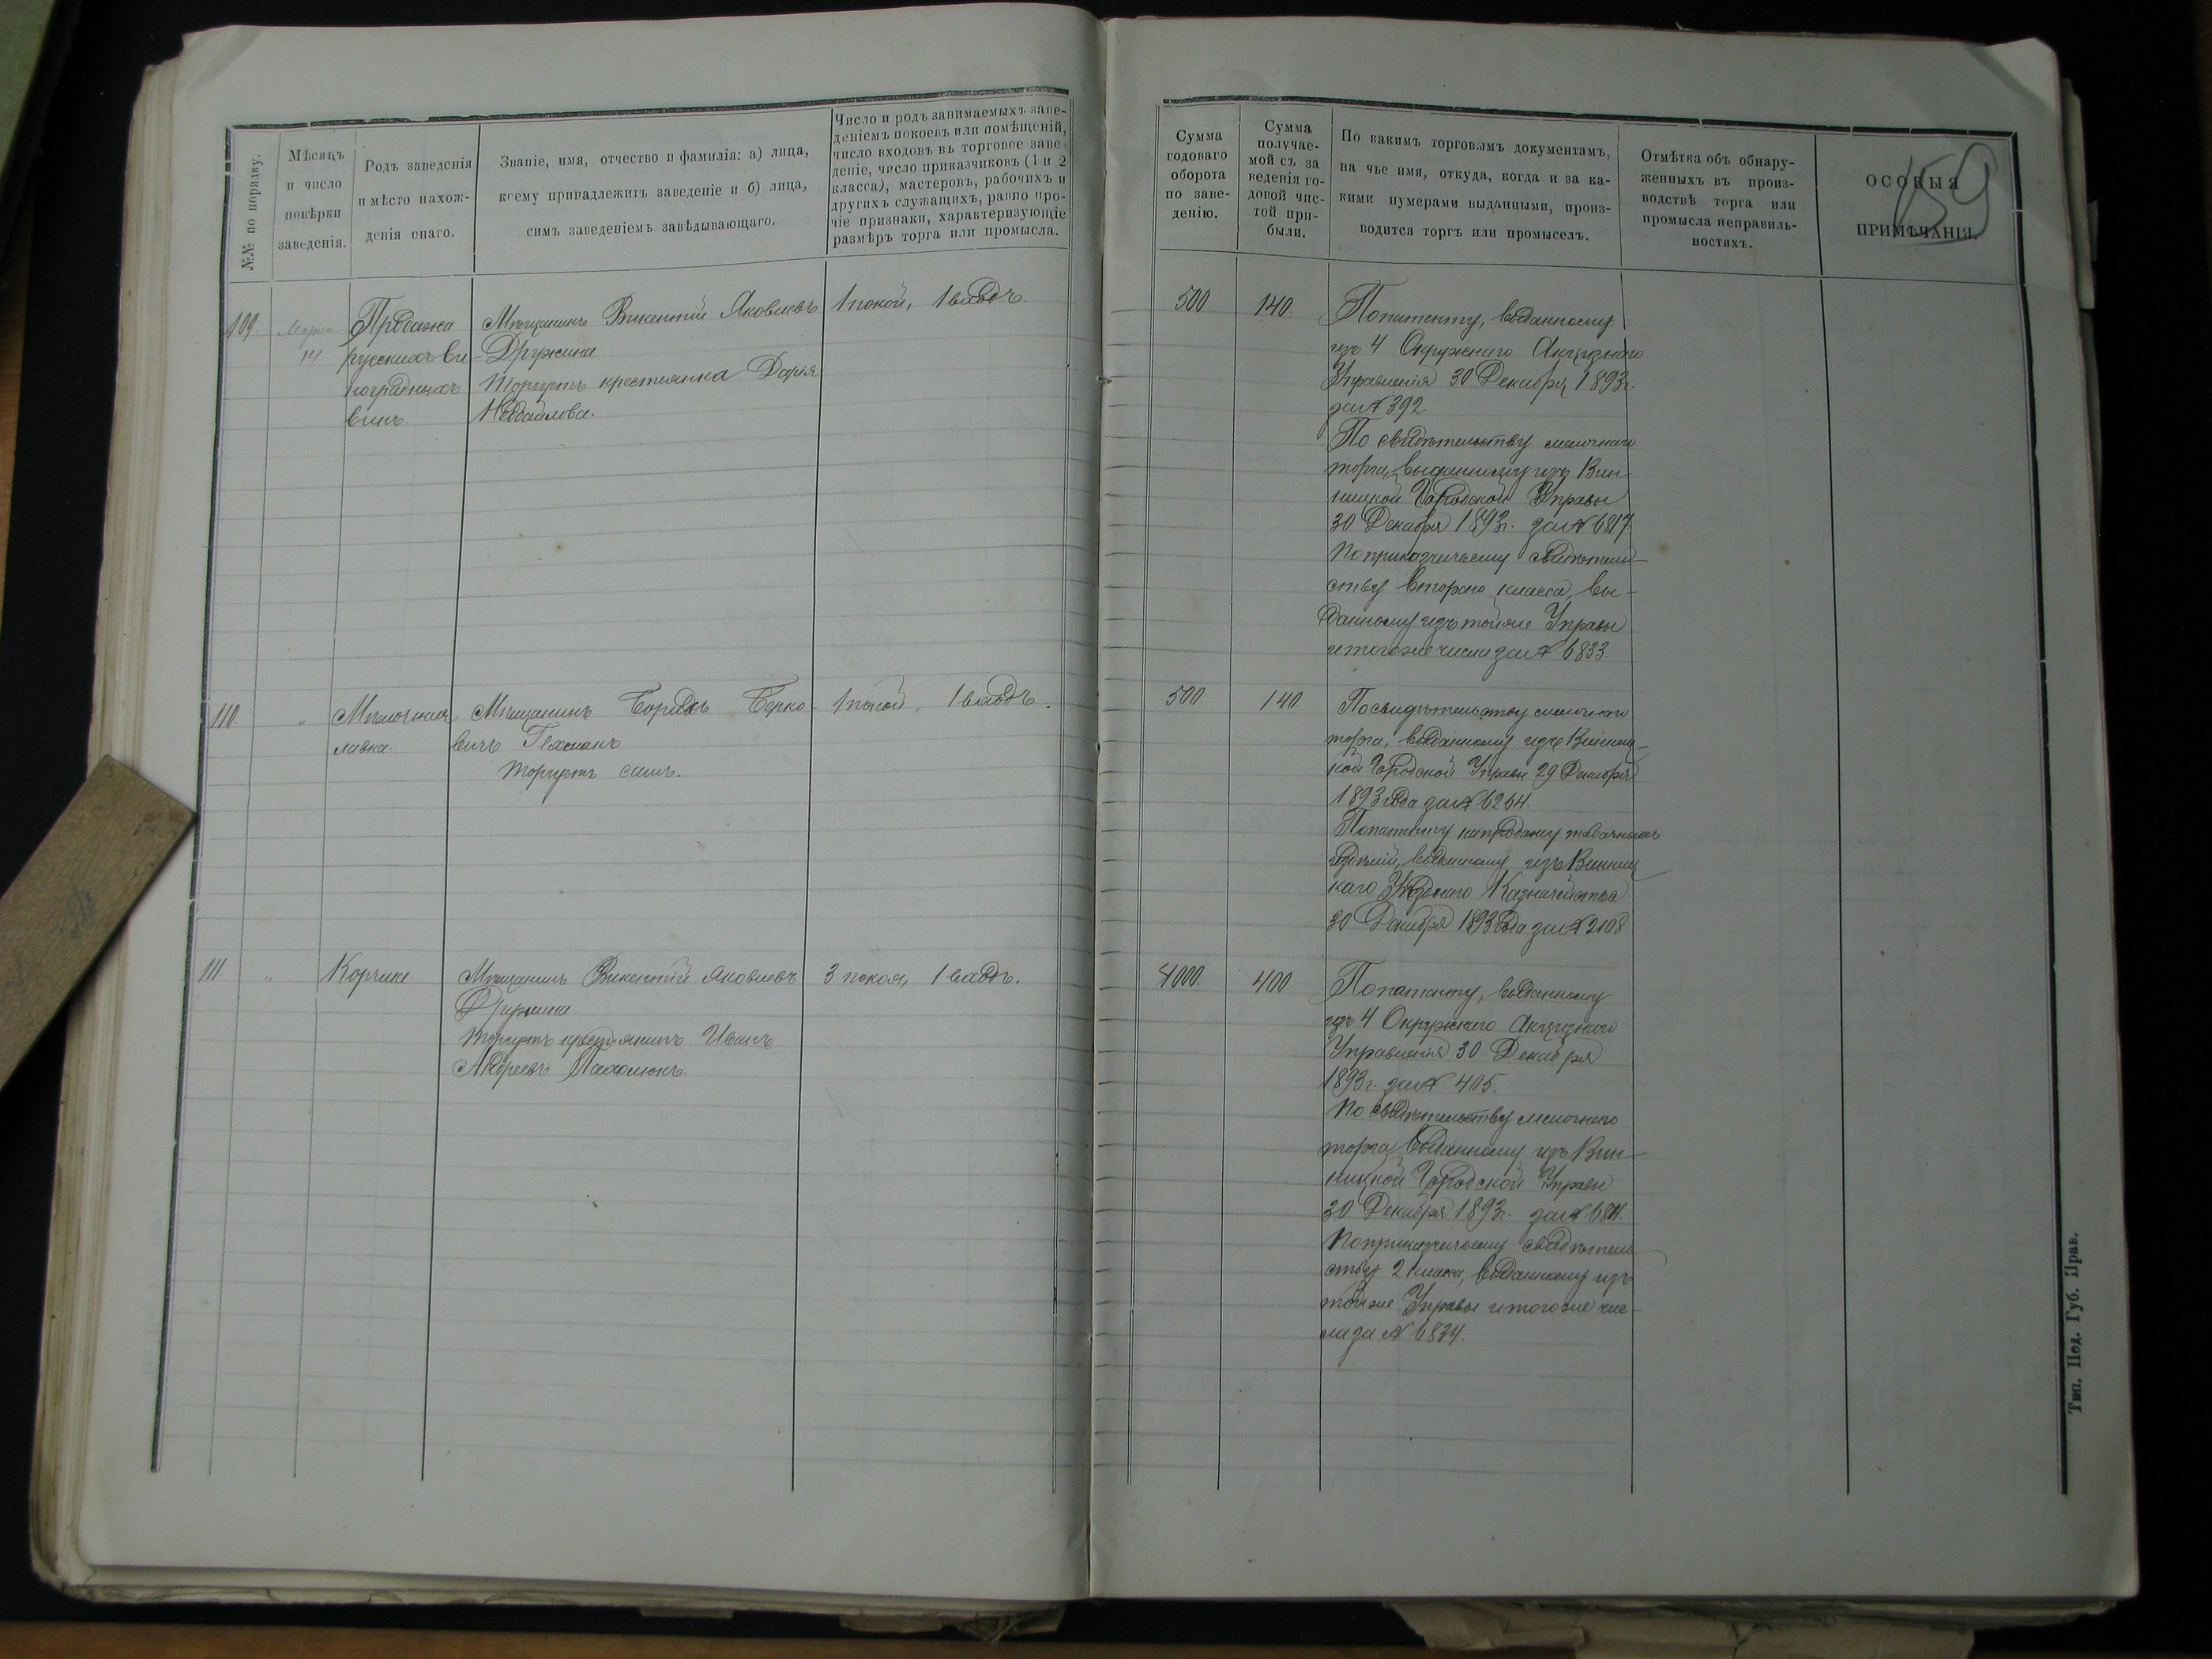 №№ по порядку.
Мѣсяцъ
и число
повѣрки
заведенія.
Родъ заведенія
и мѣсто нахож-
денія онаго.
Званіе, имя, отчество и фамилія: а) лица,
коему принадлежитъ заведеніе и б) лица,
симъ заведеніемъ завѣдывающаго.
Число и родъ занимаемыхъ заве-
деніемъ покоевъ или помѣщеній,
число входовъ въ торговое заве-
деніе, число приказчиковъ (1 и 2
класса), мастеровъ, рабочихъ и
другихъ служащихъ, равно про-
чіе признаки, характеризующіе
размѣръ торга или промысла.
Сумма
годоваго
оборота
по заве-
денію.
Сумма
получае-
мой съ за
веденія го-
довой чис-
той при-
были.
По какимъ торговымъ документамъ,
на чье имя, откуда, когда и за ка-
кими нумерами выданными, произ-
водится торгъ или промыселъ.
Отмѣтка объ обнару-
женныхъ въ произ-
водствѣ торга или
промысла неправиль-
ностяхъ.
ОСОБЫЯ
ПРИМѢЧАНІЯ.
159
109.
Марта
14
Продажа
русскихъ ви-
ноградныхъ
винъ.
Мѣщанинъ Викентій Яковлевъ
Дружина
Торгуетъ крестьянка Дарія
1 покой, 1 входъ.
500.
140.
По патенту, выданному
изъ 4 Окружнаго Акцизнаго
Управленія 30 Декабря 1893г.
за № 392.
По свидѣтельству мелочнаго
торга, выданному изъ Вин-
ницкой Городской Управы
30 Декабря 1893г. за № 6817
По приказчичьему свидѣтель-
ству втораго класса, вы-
данному изъ тойже Управы
и тогоже числа за № 6833.
110
"
Мѣлочная
лавка.
Мѣщанинъ Борухъ Берко-
вичъ
Торгуетъ самъ.
1 покой, 1 входъ.
500
140
По свидѣтельству мелочнаго
торга, выданному изъ Винниц-
кой Городской Управы 29 Декабря
1893 года за № 6264.
По патенту на продажу табачныхъ
издѣлій, выданному изъ Винниц-
каго Уѣзднаго Казначейства
30 Декабря 1893 года за № 2108
111
"
Корчма.
Мѣщанинъ Викентій Яковлевъ
Дружина
Торгуетъ крестьянинъ Иванъ
Андреевъ
3 покоя, 1 входъ.
4000.
400.
По патенту, выданному
изъ 4 Окружнаго Акцизнаго
Управленія 30 Декабря
1893г. за № 405.
По свидѣтельству мелочнаго
торга выданному изъ Вин-
ницкой Городской Управы
30 Декабря 1893г. за №
По приказчичьему свидѣтель-
ству 2 класса, выданному изъ
тойже Управы и тогоже чис-
ла за № 6834.
Тип. Под. Губ. Прав.